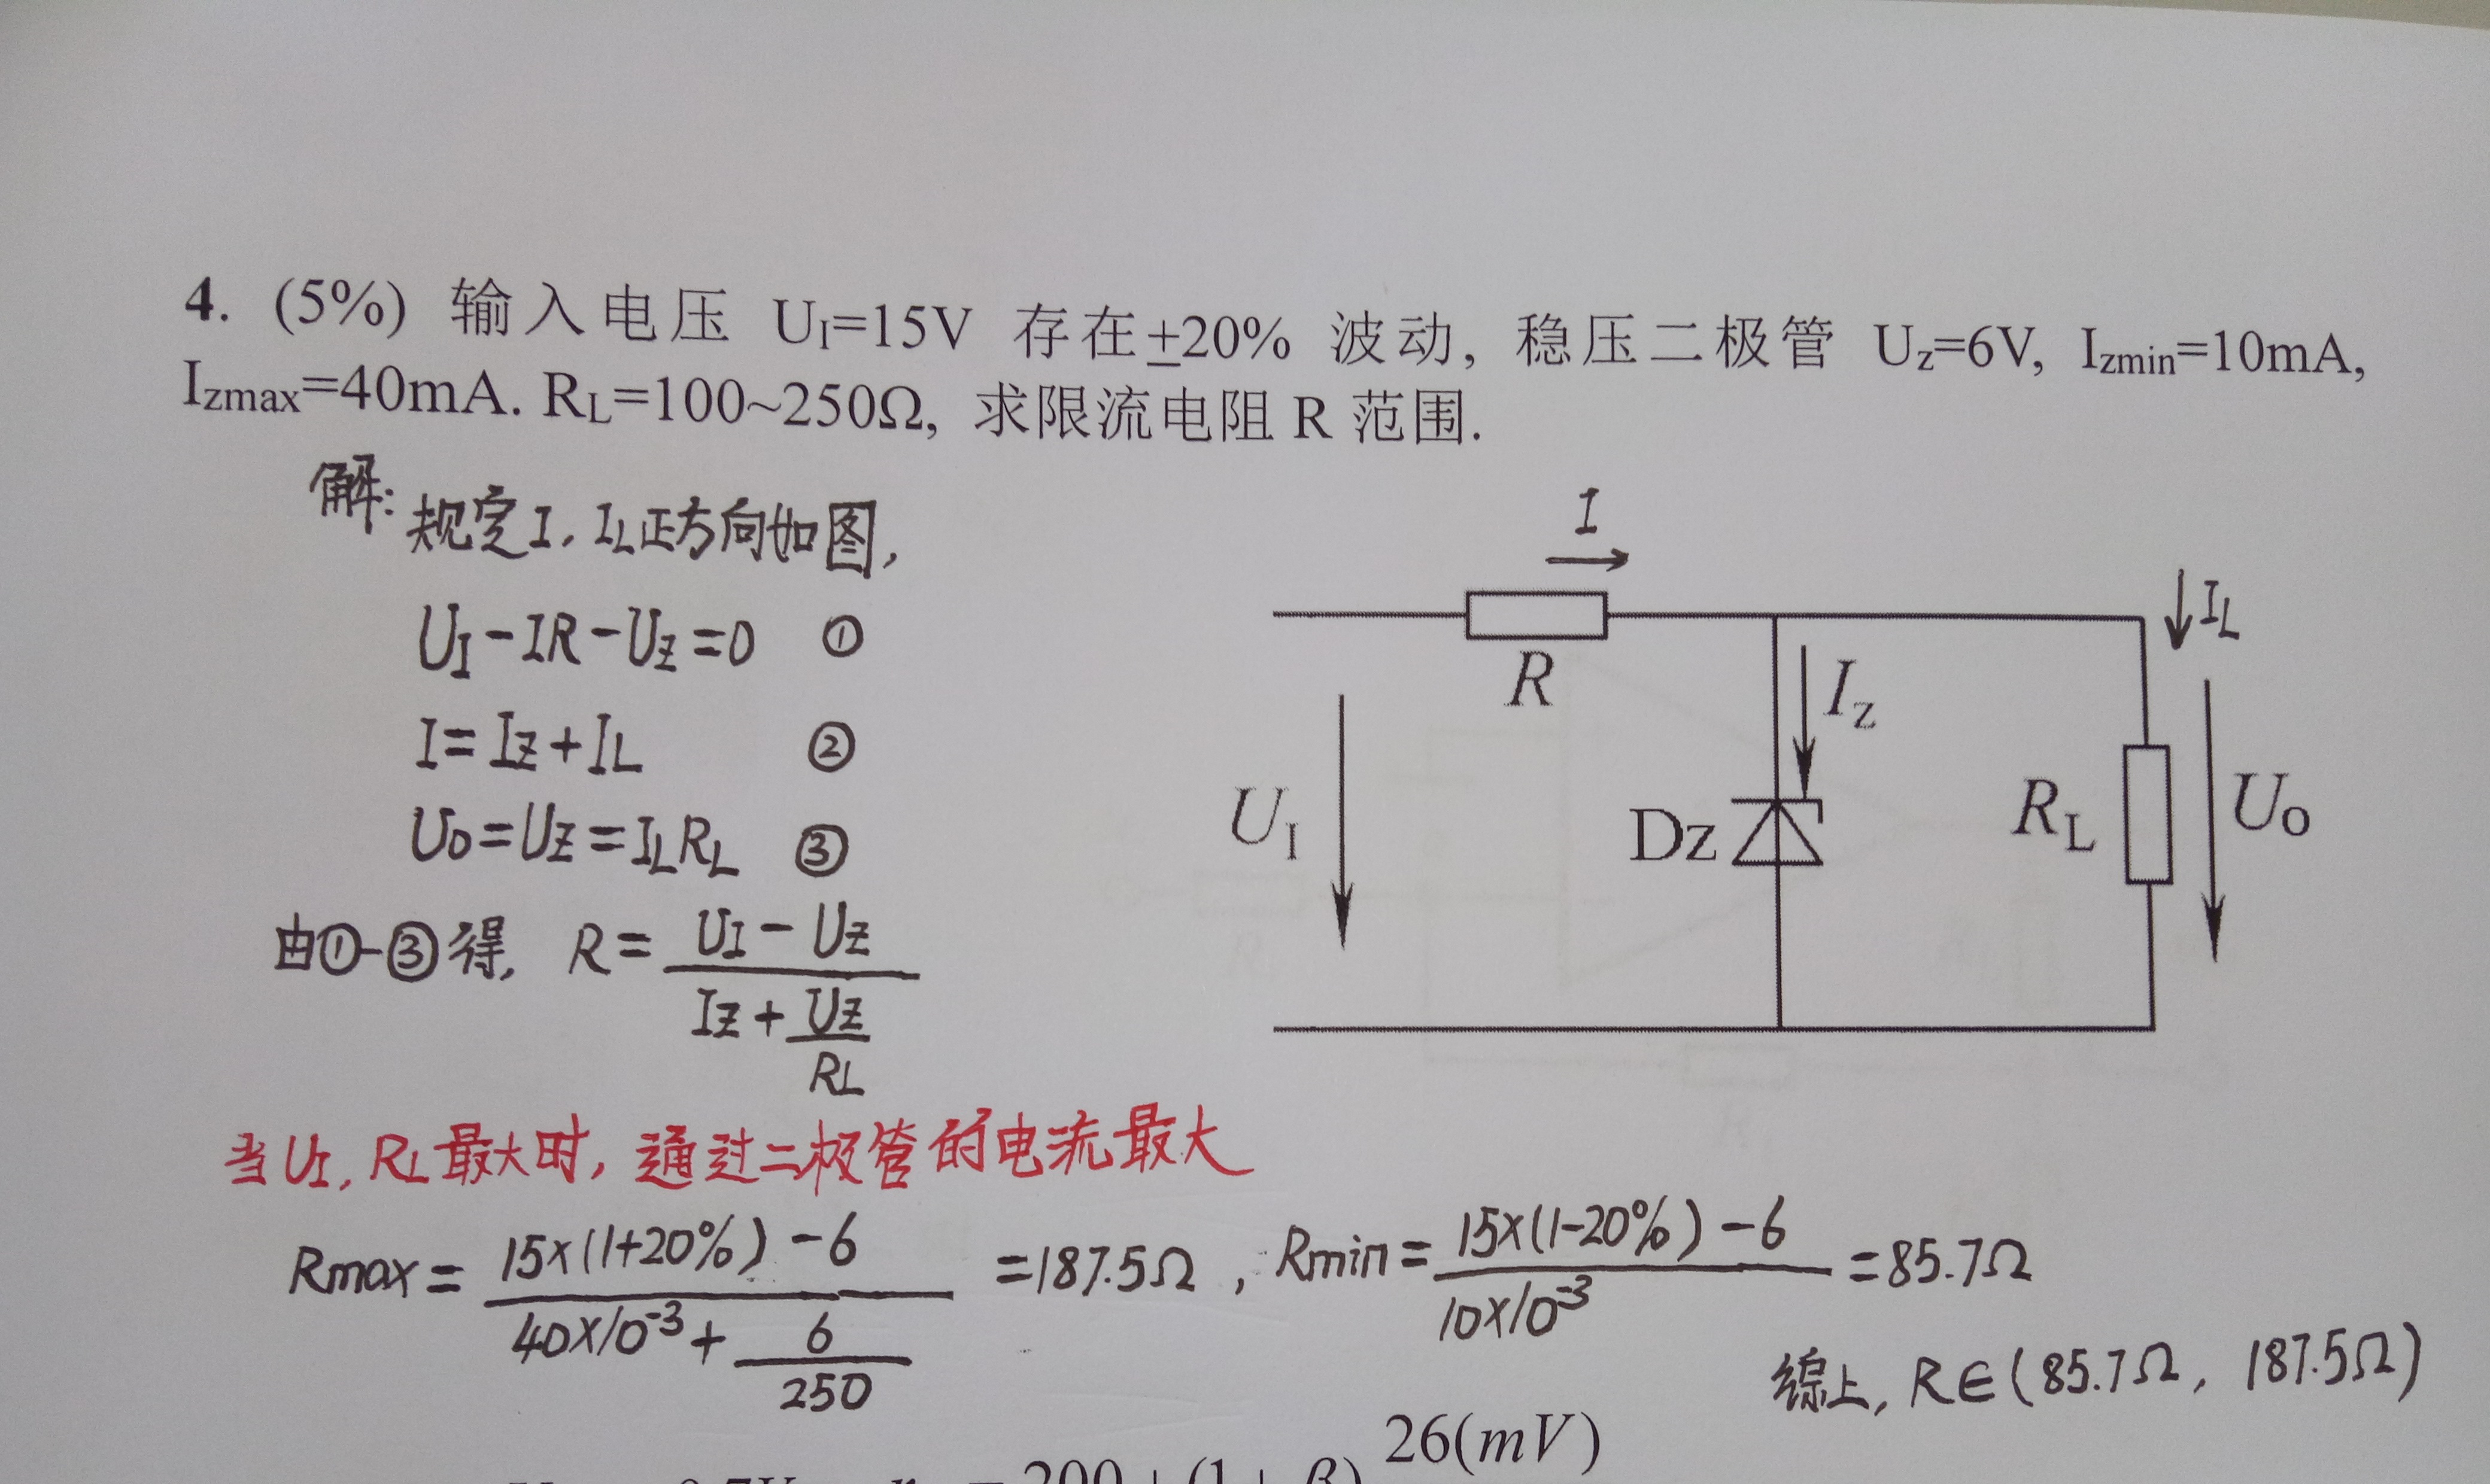 4. (5%) 输入电压 U_I=15V 存在±20% 波动, 稳压二极管 U_z=6V, I_zmin=10mA,
I_zmax=40mA. R_L=100~250Ω, 求限流电阻 R 范围.
解: 规定I, I_L正方向如图,
U_I-IR-U_Z=0 ①
I=I_Z+I_L ②
U_0=U_Z=I_LR_L ③
由①-③得, R= (U_I-U_Z)/(I_Z+U_Z/R_L)
I
R
I_L
I_z
U_I
Dz
R_L
U_o
当U_I, R_L最大时, 通过二极管的电流最大
Rmax= (15×(1+20%)-6)/(40×10^-3+6/250) =187.5Ω, Rmin= (15×(1-20%)-6)/(10×10^-3) =85.7Ω
综上, R∈(85.7Ω, 187.5Ω)
26(mV)
=200+(1+β)